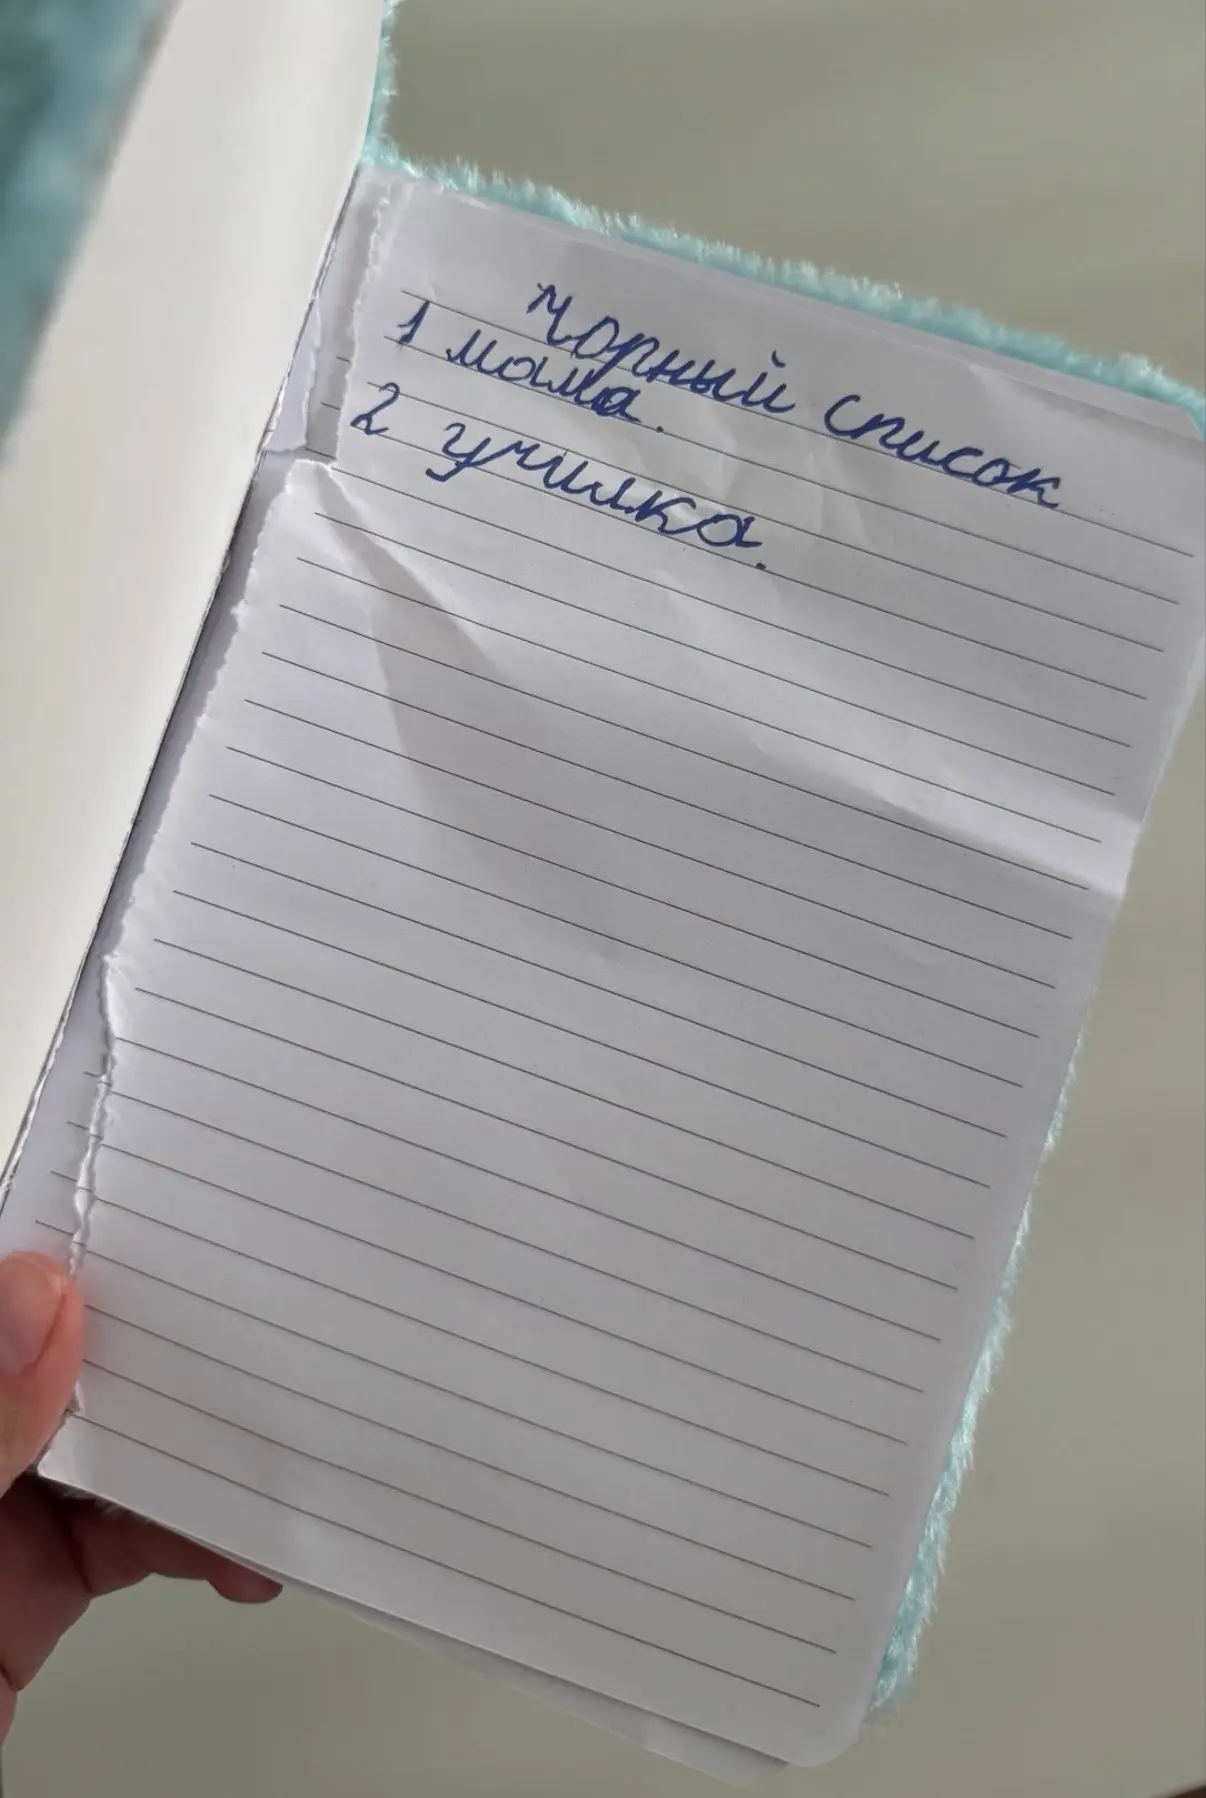 чорный список
1 мама.
2 училка.